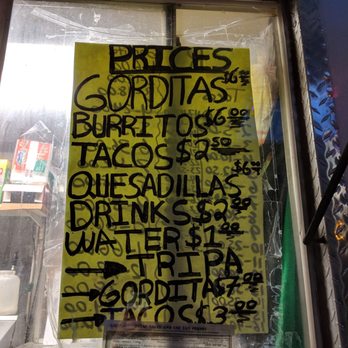 PRICES
GORDITAS $6.00
BURRITOS $6.00
TACOS $2.50
QUESADILLAS $6.00
DRINKS $2.00
WATER $1.00
→ TRIPA
→ GORDITAS 7.00
→ TACOS $3.00